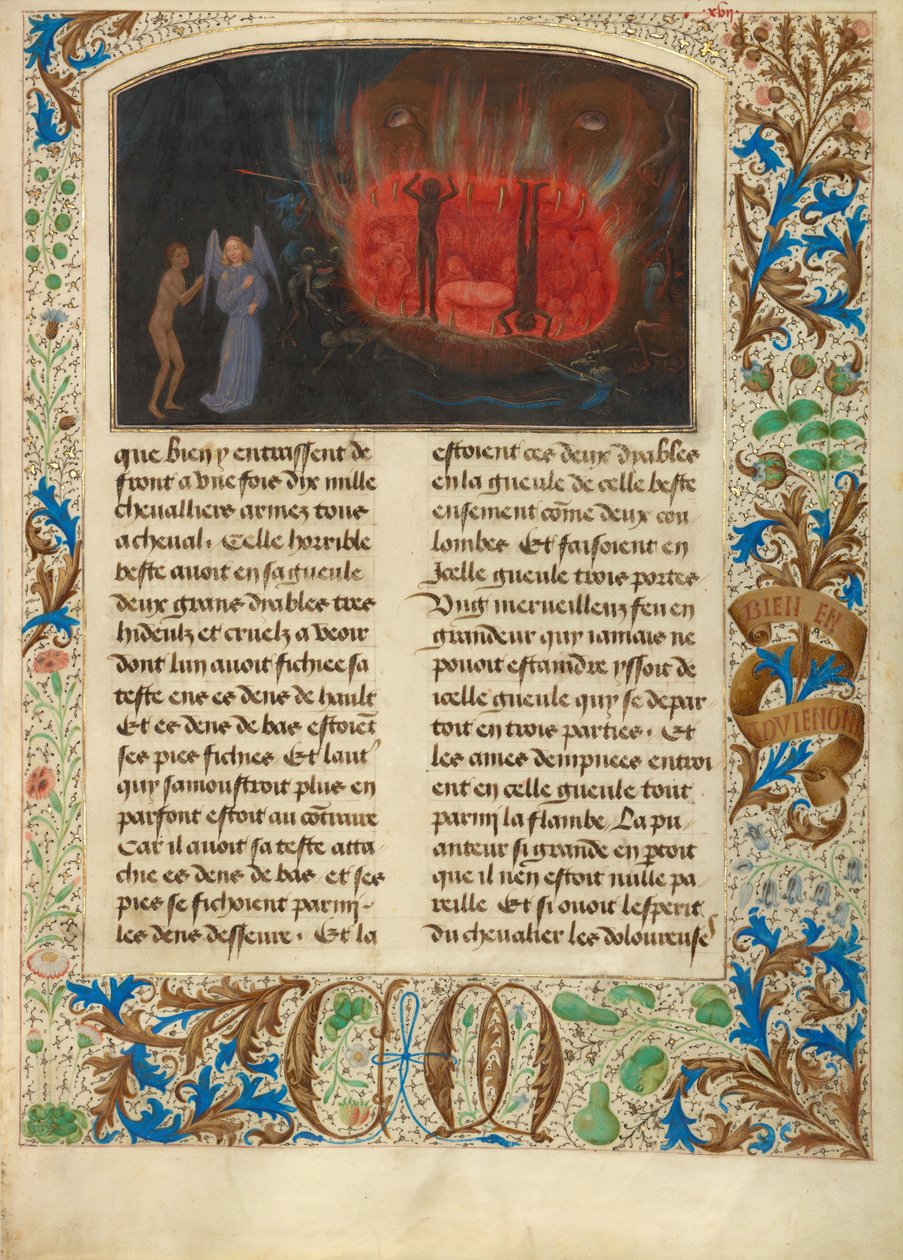 xvii
que bien y entrassent de
front a vne fois dix mille
cheualliers armez tous
a cheual. Celle horrible
beste auoit en sa gueule
deux grans dyables tres
hideulz et cruelz a veoir
dont lun auoit fichiee sa
teste ens es dens de hault
Et es dens de bas estoiẽt
ses pies fichies Et laut᷑
quy samonstroit plus en
parfont estoit au cõtraire
Car il auoit sa teste atta
chie es dens de bas, et ses
pies se fichoient parmy
les dens desseure. Et la
estoient ces deux dyables
en la gueule de celle beste
ensement cõme deux cou
lombes Et faisoient en
Jcelle gueule trois portes
Vng merueilleuz feu en
grandeur quy iamais ne
pouoit estaindre yssoit de
icelle gueule quy se depar
toit en trois parties. Et
les ames dempnees entroi
ent en celle gueule tout
parmi la flambe, La pu
anteur si grande en ꝑtoit
que il nen estoit nulle pa
reille Et si ouoit lesperit
du cheualier les doloureuses
BIEN EN
ADVIENGNE
CM